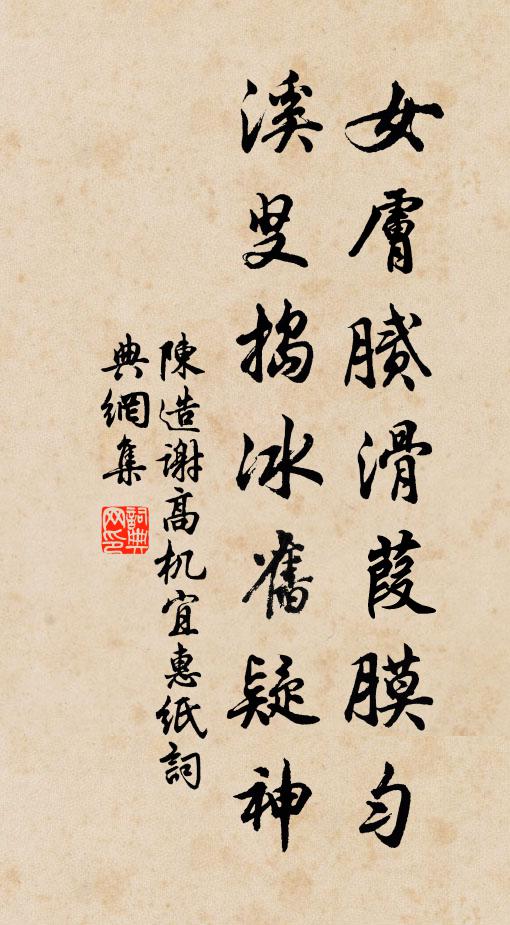 女膚膩滑葭膜勻
溪叟搗冰舊疑神
陳造謝高机宜惠紙詞
典網集
詞典網印